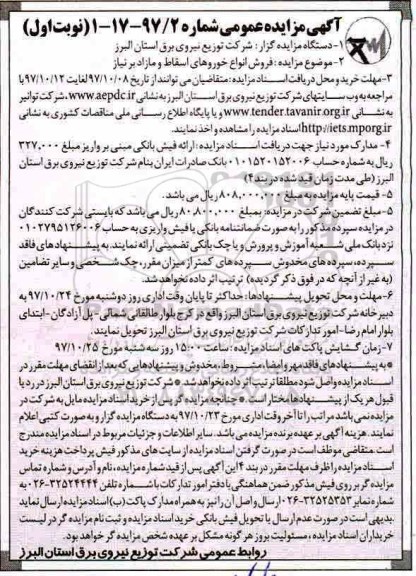 آگهی مزایده عمومی شماره ۹۷/۲-۱۷-۱ (نوبت اول)
۱- دستگاه مزایده گزار: شرکت توزیع نیروی برق استان البرز
۲- موضوع مزایده: فروش انواع خوروهای اسقاط و مازاد بر نیاز
۳- مهلت خرید و محل دریافت اسناد مزایده: متقاضیان می توانند از تاریخ ۹۷/۱۰/۰۸ لغایت ۹۷/۱۰/۱۲ با
مراجعه به وب سایتهای شرکت توزیع نیروی برق استان البرز به نشانی www.aepdc.ir، شرکت توانیر
به نشانی www.tender.tavanir.org.ir و یا پایگاه اطلاع رسانی ملی مناقصات کشوری به نشانی
http://iets.mporg.ir اسناد مزایده را مشاهده و اخذ نمایند.
۴- مدارک مورد نیاز جهت دریافت اسناد مزایده: ارائه فیش بانکی مبنی بر واریز مبلغ ۳۲۷،۰۰۰
ریال به شماره حساب ۰۱۰۱۵۲۰۱۵۲۰۰۶ بانک صادرات ایران بنام شرکت توزیع نیروی برق استان
البرز (طی مدت زمان قید شده در بند ۴)
۵- قیمت پایه مزایده به مبلغ ۸۰۸،۰۰۰،۰۰۰ ریال می باشد.
۵- مبلغ تضمین شرکت در مزایده: بمبلغ ۸۰،۸۰۰،۰۰۰ ریال می باشد که بایستی شرکت کنندگان
در مزایده سپرده مذکور را به صورت ضمانتنامه بانکی یا فیش واریزی به حساب ۰۱۰۲۷۹۵۱۲۶۰۰۶
نزد بانک ملی شعبه آموزش و پرورش و یا چک بانکی تضمینی ارائه نمایند. به پیشنهادهای فاقد
سپرده، سپرده های مخدوش، سپرده های کمتر از میزان مقرر، چک شخصی و سایر تضامین
(به غیر از آنچه که در فوق ذکر گردیده) ترتیب اثر داده نخواهد شد.
۶- مهلت و محل تحویل پیشنهادها: حداکثر تا پایان وقت اداری روز دوشنبه مورخ ۹۷/۱۰/۲۴ به
دبیرخانه شرکت توزیع نیروی برق استان البرز واقع در کرج بلوار طالقانی شمالی - پل آزادگان - ابتدای
بلوار امام رضا - امور تدارکات شرکت توزیع نیروی برق استان البرز تحویل نمایند.
۷- زمان گشایش پاکت های اسناد مزایده: ساعت ۱۵:۰۰ روز سه شنبه مورخ ۹۷/۱۰/۲۵
• به پیشنهادهای فاقد مهر و امضا، مشروط، مخدوش و پیشنهادهایی که بعد از انقضای مهلت مقرر در
اسناد مزایده واصل شود مطلقا ترتیب اثر داده نخواهد شد • شرکت توزیع نیروی برق استان البرز در رد یا
قبول هر یک از پیشنهادها مختار است • چنانچه مزایده گر پس از خرید اسناد مزایده مایل به شرکت در
مزایده نمی باشد مراتب را تا آخر وقت اداری مورخ ۹۷/۱۰/۲۳ به دستگاه مزایده گزار و به صورت کتبی اعلام
نمایند. هزینه آگهی بر عهده برنده مزایده می باشد. سایر اطلاعات و جزئیات مربوط در اسناد مزایده مندرج
است. متقاضی موظف است در صورت گرفتن اسناد مزایده از سایت های مذکور فیش پرداخت هزینه خرید
اسناد مزایده را ظرف مهلت مقرر در بند ۴ این آگهی پس از قید شماره مزایده، نام و آدرس و شماره تماس
مزایده گر بر روی فیش مذکور ضمن هماهنگی با دفتر امور تدارکات با شماره تلفن ۳۲۵۲۴۴۴۴-۰۲۶ به
شماره نمابر ۳۲۵۲۵۳۵۳-۰۲۶ ارسال و اصل آن را نیز به همراه مدارک پاکت (ب) اسناد مزایده ارسال نماید
.بدیهی است در صورت عدم ارسال یا تحویل فیش بانکی خرید اسناد مزایده و ثبت نام مزایده گر در لیست
خریداران اسناد مزایده، مسئولیت بروز هر گونه مشکل بر عهده شخص مزایده گر خواهد بود.
روابط عمومی شرکت توزیع نیروی برق استان البرز